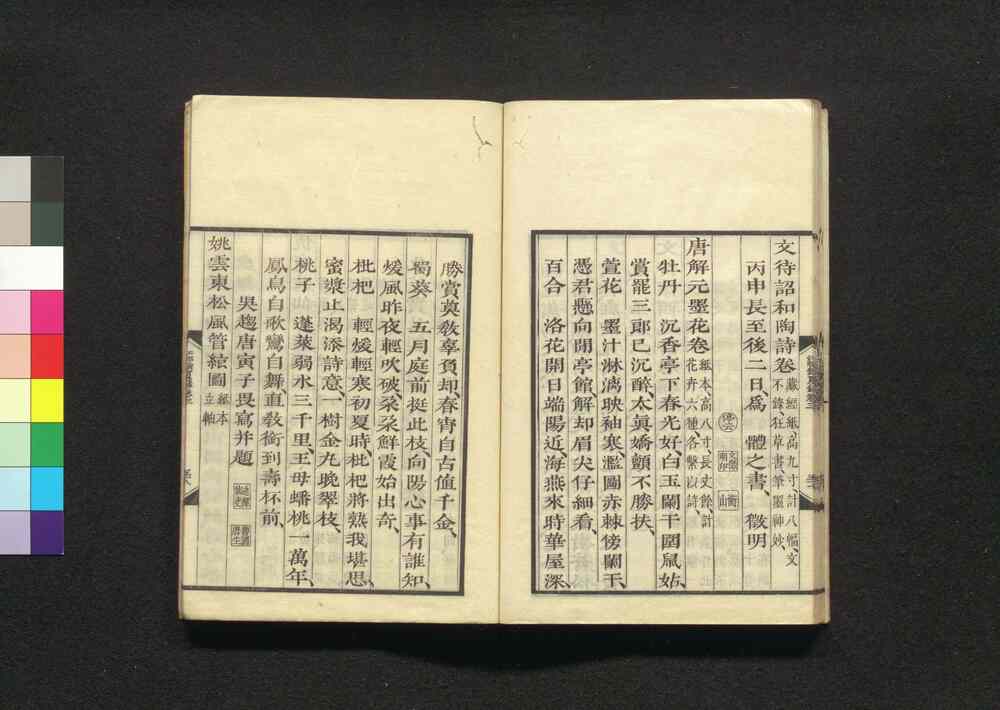 文待詔和陶詩卷 藏經紙、高九寸計八幅、文
不錄、狂草書、筆墨神妙、
丙申長至後二日爲 體之書、 徵明
唐解元墨花卷 紙本高八寸長丈餘、計
花卉六種各繫以詩
牡丹 沉香亭下春光好、白玉闌干圍鼠姑、
賞罷三郎已沉醉、太真嬌顫不勝扶、
萱花 墨汁淋漓映袖寒、濫圖赤棘傍闌干、
憑君懸向閒亭館解却眉尖仔細看、
百合 洛花開日端陽近、海燕來時華屋深、
勝賞莫教辜負却、春宵自古値千金、
蜀葵 五月庭前挺此枝、向陽心事有誰知、
煖風昨夜輕吹破、朶朶鮮霞始出奇、
枇杷 輕煖輕寒初夏時、枇杷將熟我堪思、
蜜漿止渴添詩意、一樹金丸晩翠枝、
桃子 蓬萊弱水三千里、王母蟠桃一萬年、
鳳鳥自歌鸞自舞直教銜到壽杯前、
吳趨唐寅子畏寫并題
姚雲東松風管絃圖 紙本
立軸